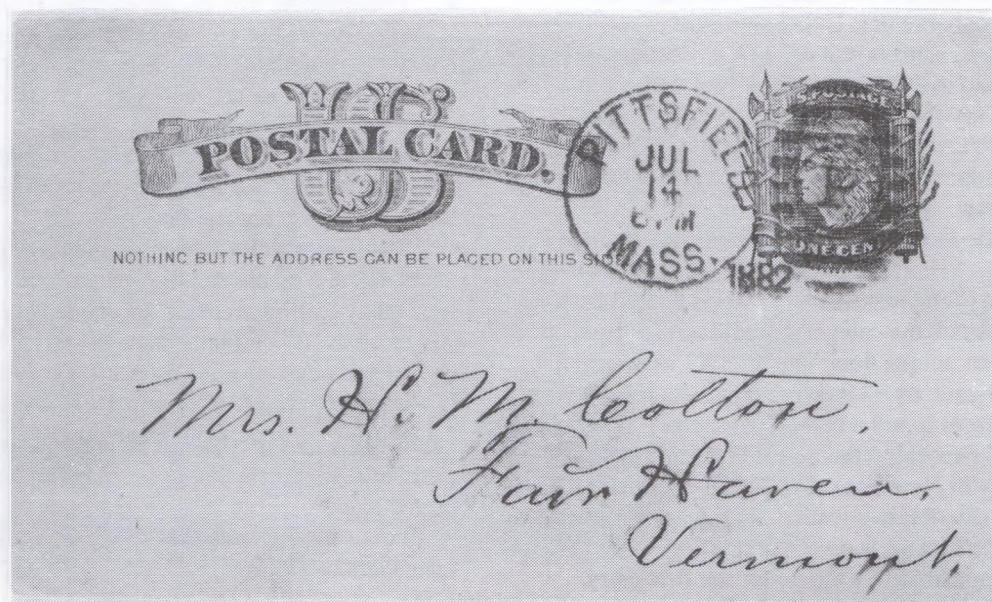 US
POSTAL CARD.
NOTHING BUT THE ADDRESS CAN BE PLACED ON THIS
PITTSFIELD
JUL
14
MASS.
1882
U.S. POSTAGE
ONE CENT
Mrs. H. M. Colton,
Fair Haven,
Vermont.